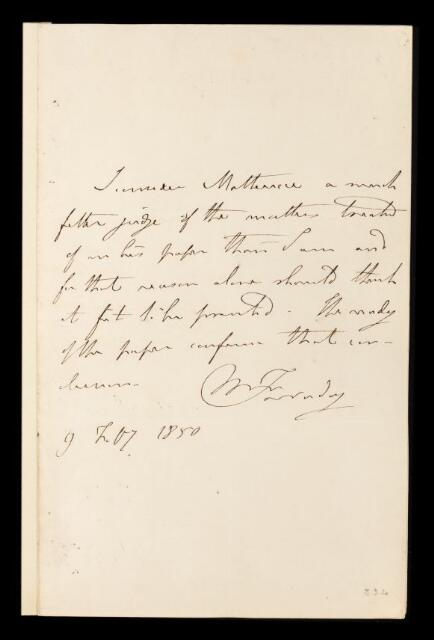 I consider Matteucci a much
fitter judge of the matters treated
of in his paper than I am and
for that reason alone should think
it fit to be printed. The reading
of the paper confirms that con-
clusion.
M Faraday
9 Feby 1850